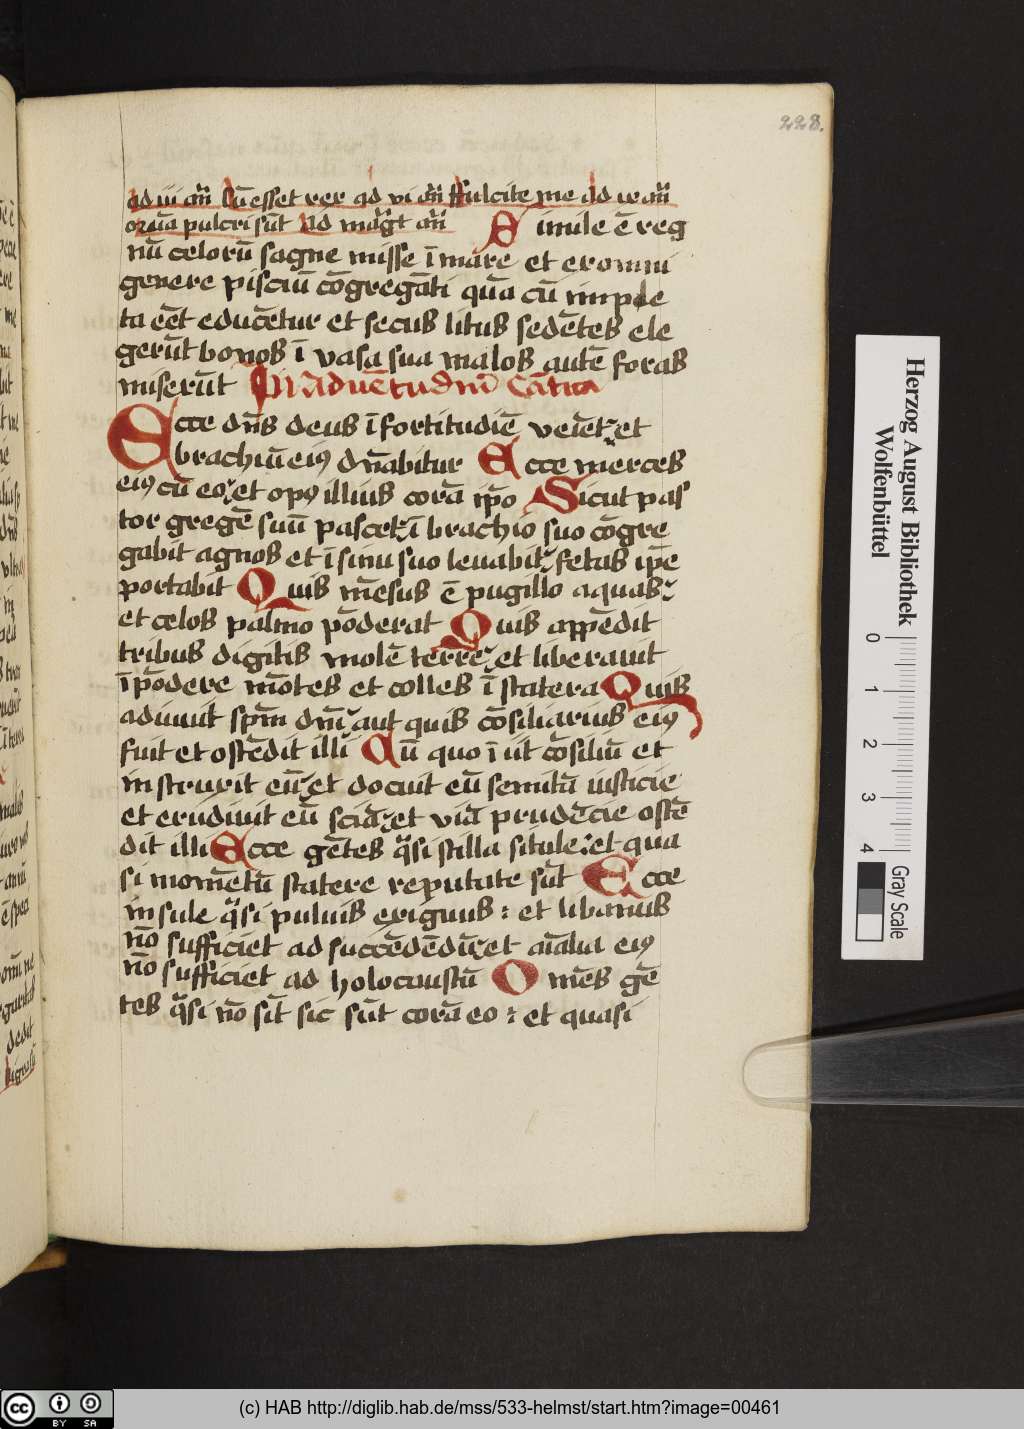 228.
ad iii an̄ Cū esset rex ad vi an̄ ffulcite me ad
pulcri sūt Ad an̄ Simile ē reg
nū celorū sagne misse ī mare et ex omni
genere pisciū cōgregāti quā cū imple
ta eēt educētur et secus litus sedētes ele
gerūt bonos ī vasa sua malos autē foras
miserūt In aduētu dnī Cātica
Ecce dn̄s deus ī fortitudīe veīet et
brachiū eiꝰ dn̄abitur Ecce merces
eiꝰ cū eo et opꝰ illius corā ip̄o Sicut pas
tor gregē suū pascet ī brachio suo cōgre
gabit agnos et ī sinu suo leuabit fetas ip̄e
portabit Quis mēsus ē pugillo aquas
et celos palmo pōderat Quis appēdit
tribus digitis molē terre et liberauit
ī pōdere mōtes et colles ī statera Quis
adiuuit spm̄ dnī aut quis cōsiliarius eiꝰ
fuit et ostēdit illi Cū quo ī iit cōsiliū et
instruxit eū et docuit eū semitā iusticie
et erudiuit eū sciā et viā prudēcie ostē
dit illi Ecce gētes qͣsi stilla situle et qua
si momētū statere reputate sūt Ecce
insule qͣsi puluis exiguus : et libanus
nō sufficiet ad succēdēdū et aīalia eiꝰ
nō sufficiet ad holocaustū Omēs gē
tes qͣsi nō sīt sic sūt corā eo : et quasi
Herzog August Bibliothek
Wolfenbüttel
0 1 2 3 4
Gray Scale
cc BY SA
(c) HAB http://diglib.hab.de/mss/533-helmst/start.htm?image=00461